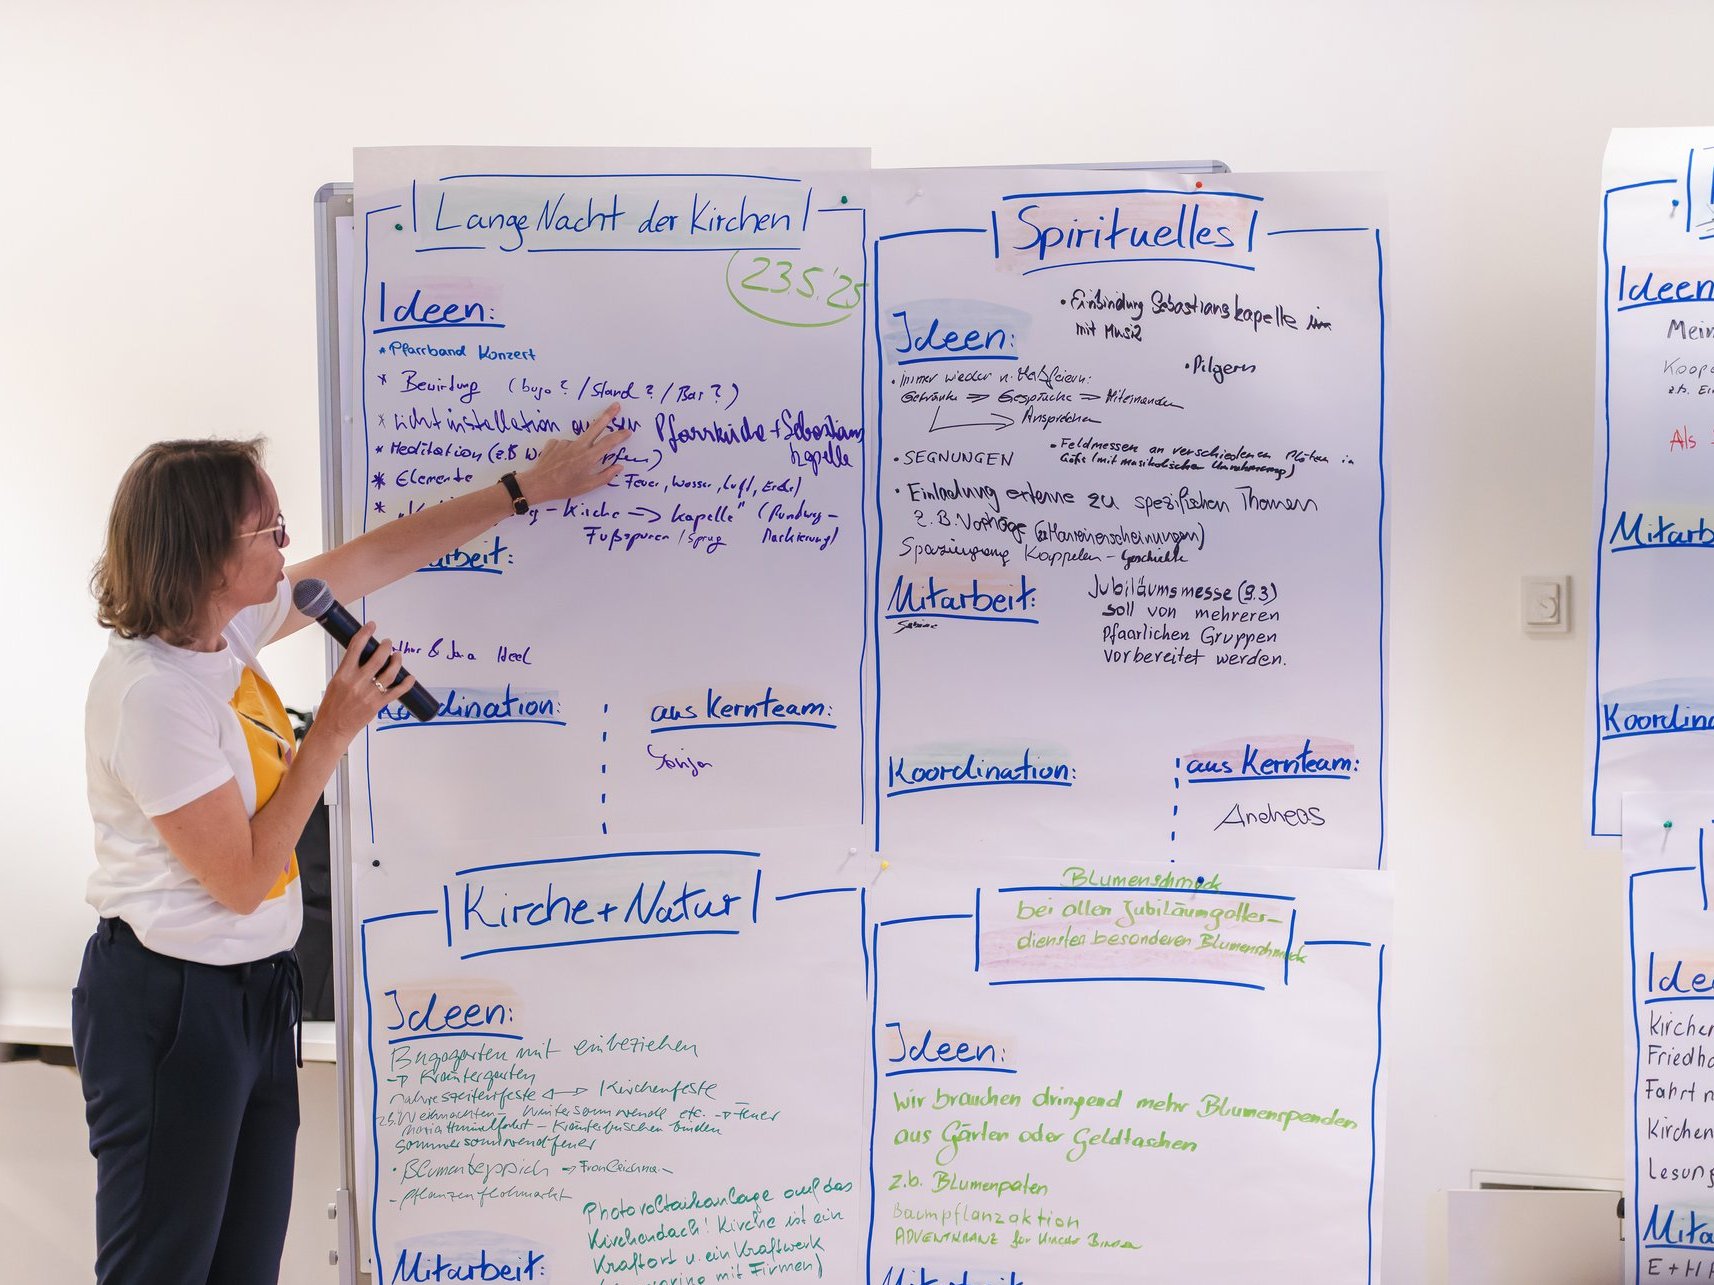 Lange Nacht der Kirchen
23.5.'25
Ideen:
* Pfarrband Konzert
* Bewirtung ( ? / Stand? / Bar? )
* Lichtinstallation Pfarrkirche + Sebastians
kapelle
* Meditation (z.B
* Elemente Feuer, Wasser, Luft, Erde)
* - Kirche -> Kapelle" (Rundweg -
Fußspuren / Markierung)
arbeit:
& Heel
Koordination:
aus Kernteam:
Sonja
Spirituelles
• Einbindung Sebastianskapelle
mit Musik
Ideen:
• Pilgern
• Immer wieder
Getränke => Gespräche => Miteinander
Ansprechen
• Feldmessen an verschiedenen Plätzen in
(mit musikalischer Umrahmung)
• SEGNUNGEN
• Einladung externe zu spezifischen Themen
z.B. Vorträge (Marienerscheinungen)
Spaziergang Kappelen - Geschichte
Mitarbeit:
Sabine
Jubiläumsmesse (9.3)
soll von mehreren
Pfaarlichen Gruppen
vorbereitet werden.
Koordination:
aus Kernteam:
Andreas
Kirche + Natur
Ideen:
Bugogarten mit einbeziehen
-> Kräutergarten
Jahreszeitenfeste <-> Kirchenfeste
z.B. Weihnachten - Wintersonnwende etc. -> Feuer
Maria Himmelfahrt - Kräuterbuschen binden
Sommersonnwendfeuer
• Blumenteppich -> Fronleichnam
- Pflanzenflohmarkt
Photovoltaikanlage auf das
Kirchendach! Kirche ist ein
Kraftort u. ein Kraftwerk
mit Firmen)
Mitarbeit:
Blumenschmuck
bei allen Jubiläumgottes-
diensten besonderen Blumenschmuck
Ideen:
Wir brauchen dringend mehr Blumenspenden
aus Gärten oder Geldtaschen
z.b. Blumenpaten
Baumpflanzaktion
ADVENTKRANZ für Kirche Binden
Ideen
Mein
Koope
z.b. Ei
Als
Mitarb
Koordina
Idee
Kirchen
Friedho
Fahrt n
Kirchen
Lesung
Mita
E + H